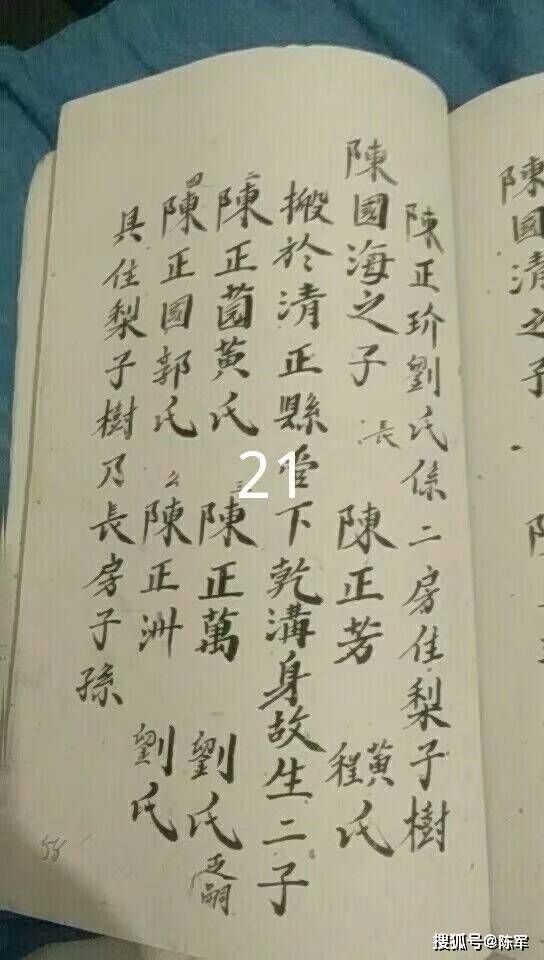 陳國清之子
陳正玠劉氏係二房住梨子樹
陳國海之子 長 陳正芳 黃程氏
搬於清正縣下乾溝身故生二子
二 陳正茵黃氏 三 陳正萬 劉氏 乏嗣
四 陳正國郭氏 么 陳正洲 劉氏
具住梨子樹乃長房子孫
58
21
搜狐号@陈军